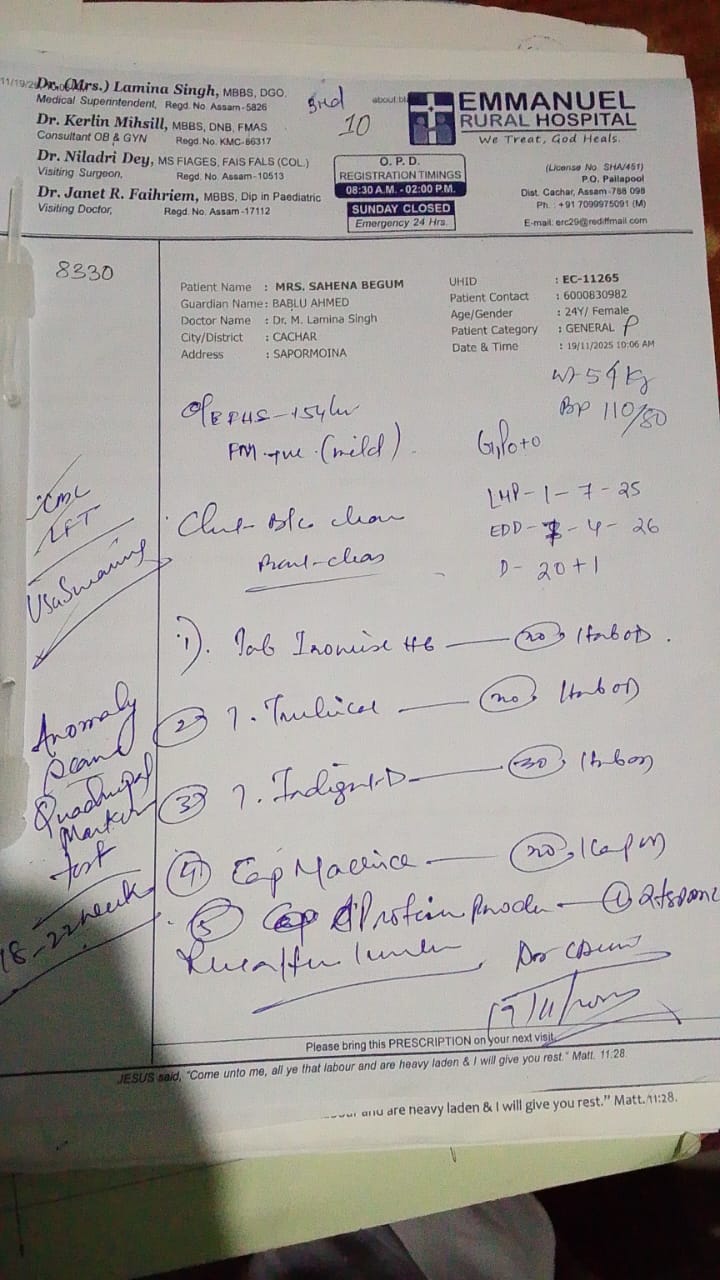 11/19/2
about:bl
Dr. (Mrs.) Lamina Singh, MBBS, DGO.
Medical Superintendent, Regd. No. Assam-5826
Dr. Kerlin Mihsill, MBBS, DNB, FMAS
Consultant OB & GYN Regd. No. KMC-86317
Dr. Niladri Dey, MS FIAGES, FAIS FALS (COL.)
Visiting Surgeon, Regd. No. Assam - 10513
Dr. Janet R. Faihriem, MBBS, Dip in Paediatric
Visiting Doctor, Regd. No. Assam -17112
3rd
10
O. P. D.
REGISTRATION TIMINGS
08:30 A.M. - 02:00 P.M.
SUNDAY CLOSED
Emergency 24 Hrs.
EMMANUEL
RURAL HOSPITAL
We Treat, God Heals.
(License No. SHA/451)
P.O. Pallapool
Dist. Cachar, Assam-788 098
Ph. : +91 7099975091 (M)
E-mail: erc29@rediffmail.com
8330
Patient Name : MRS. SAHENA BEGUM
Guardian Name : BABLU AHMED
Doctor Name : Dr. M. Lamina Singh
City/District : CACHAR
Address : SAPORMOINA
UHID : EC-11265
Patient Contact : 6000830982
Age/Gender : 24Y/ Female
Patient Category : GENERAL P
Date & Time : 19/11/2025 10:06 AM
Wt-54 kg
BP 110/80
O/E FHS-154
FM +ve (mild).
G1P0+0
LMP-1-7-25
EDD-7-4-26
D-20+1
Chest B/c clear
CBC
LFT
Anomaly
Scan
Quadruple
Marker
test
18-22 week
1). Tab Ironise HB — 20, 1 tab OD.
2) T. — 20, 1 tab OD
3) T. -D — 30, 1 tab
4) Cap — 20, 1 cap
5) Protein — 1 2 tspoon
19/11/2025
Please bring this PRESCRIPTION on your next visit.
JESUS said, "Come unto me, all ye that labour and are heavy laden & I will give you rest." Matt. 11:28.
and are heavy laden & I will give you rest." Matt. 11:28.